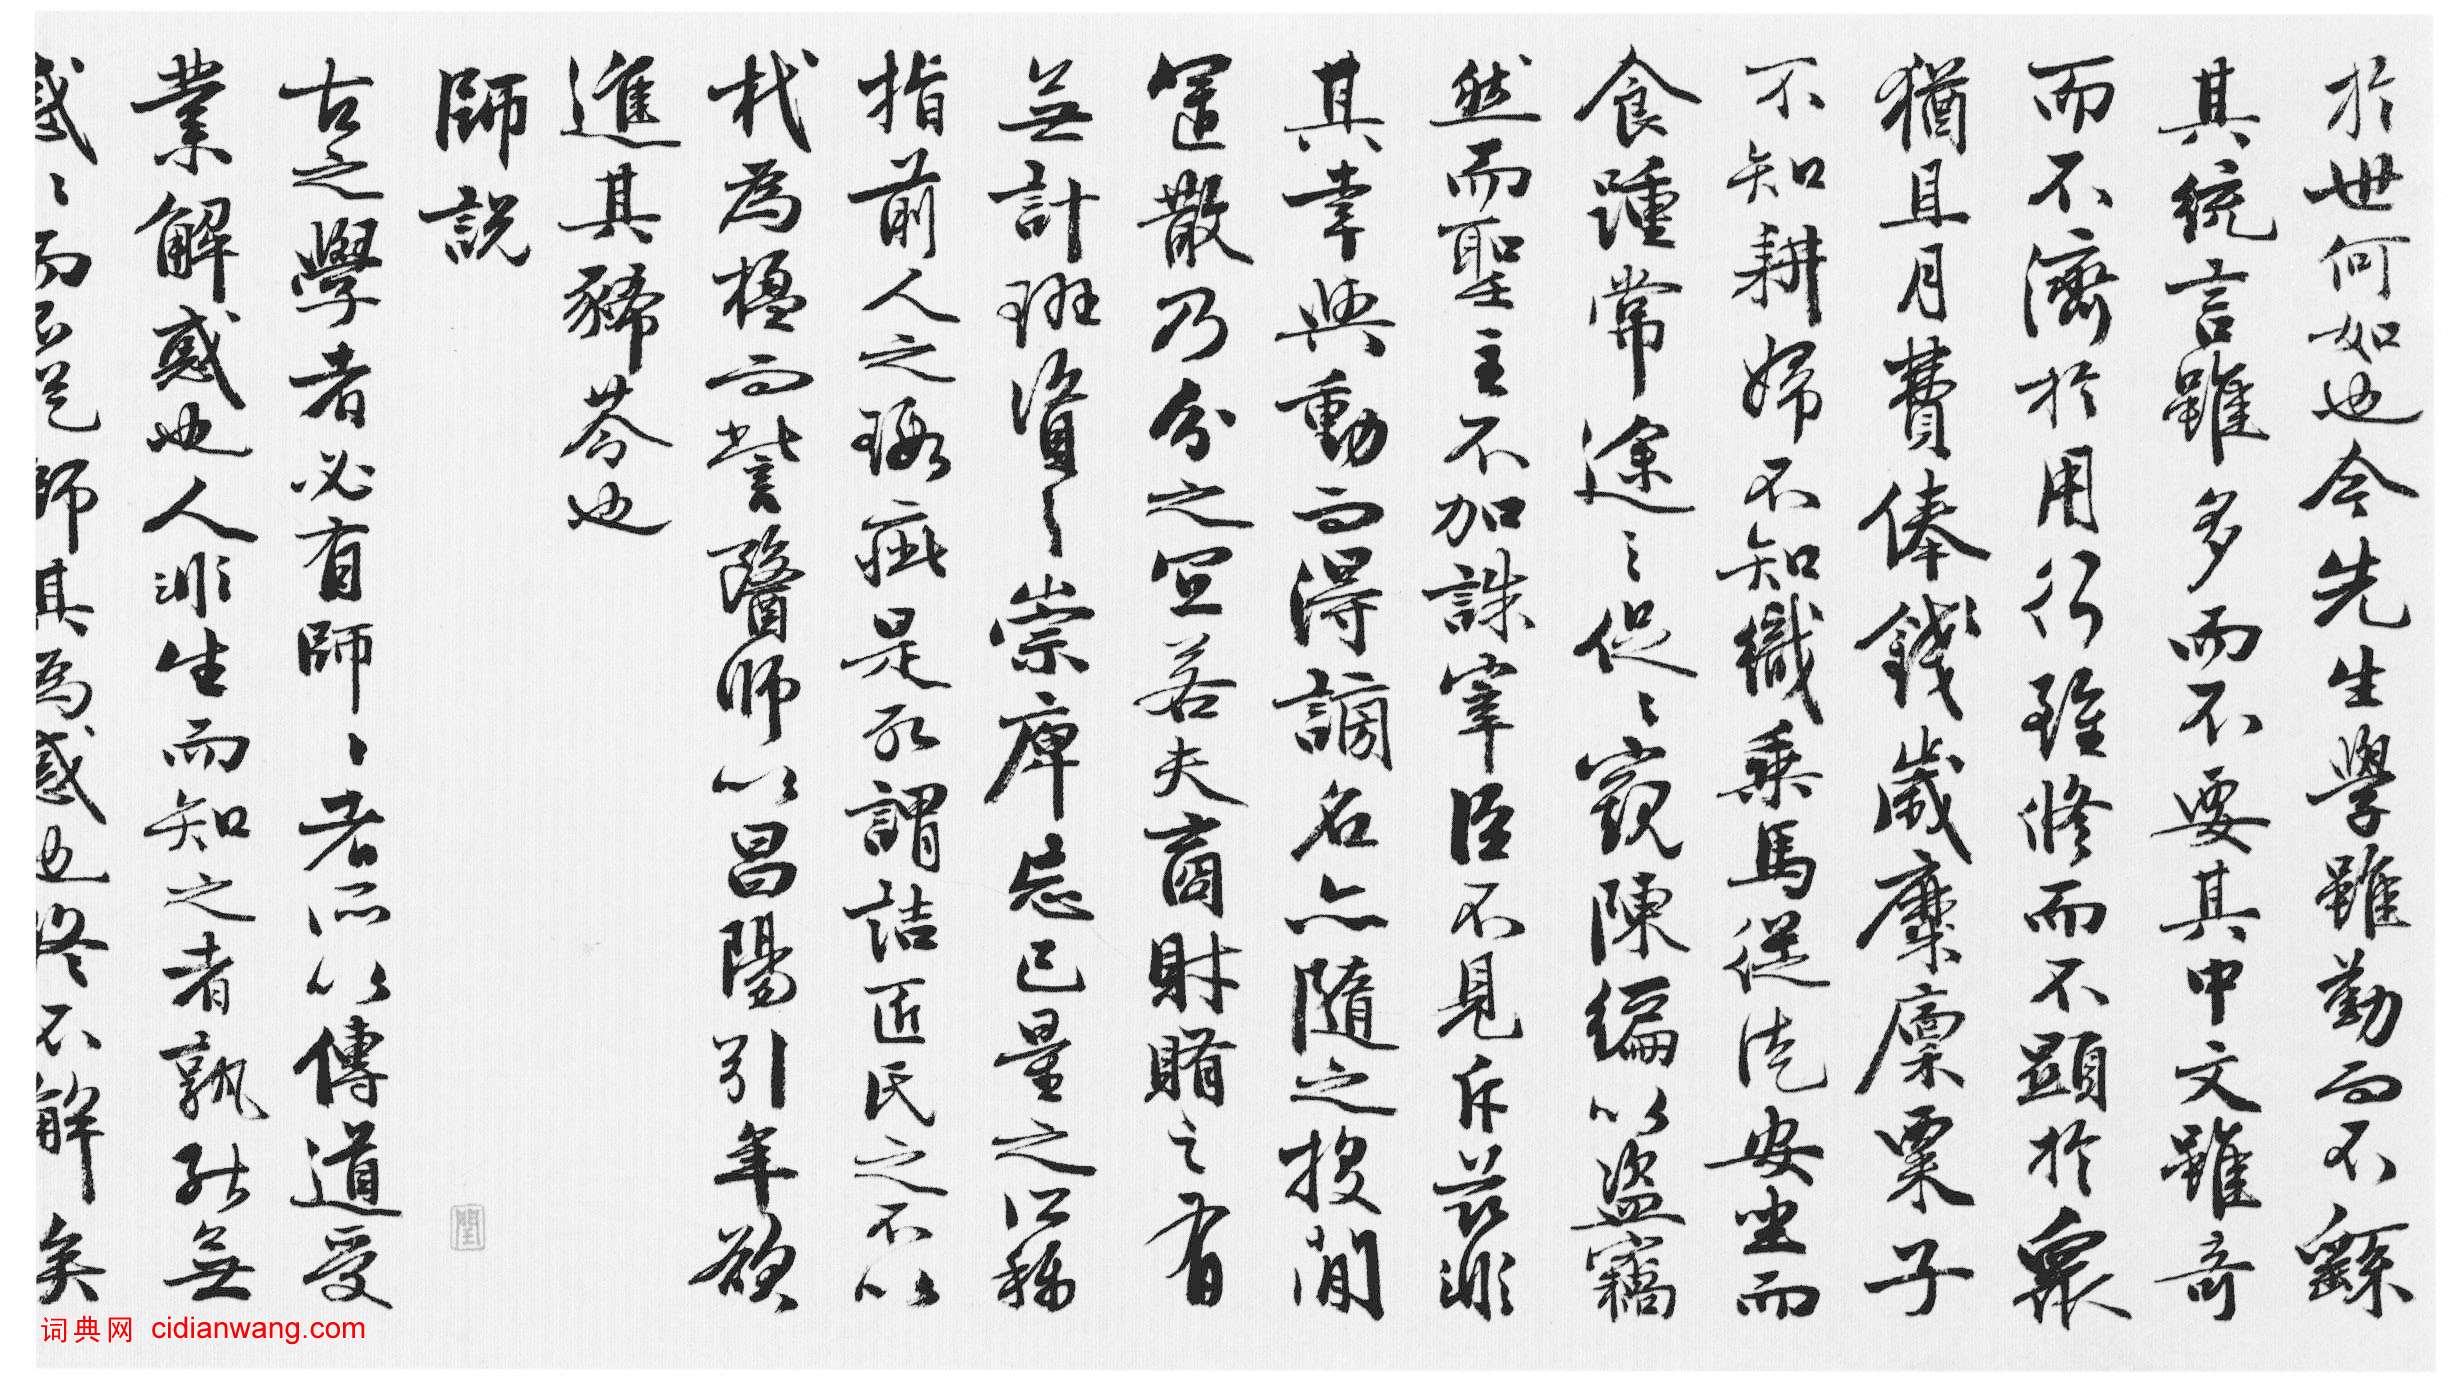 於世何如也今先生學雖勤而不繇
其統言雖多而不要其中文雖奇
而不濟於用行雖修而不顯於衆
猶且月費俸錢歲糜廩粟子
不知耕婦不知織乘馬從徒安坐而
食踵常途之促促窺陳編以盜竊
然而聖主不加誅宰臣不見斥茲非
其幸與動而得謗名亦隨之投閒
置散乃分之宜若夫商財賄之有
無計班資之崇庳忘己量之所稱
指前人之瑕疵是所謂詰匠氏之不以
杙為楹而訾醫師以昌陽引年欲
進其豨苓也
師說
古之學者必有師〻者所以傳道受
業解惑也人非生而知之者孰能無
惑〻而不從師其為惑也終不解矣
词典网 cidianwang.com